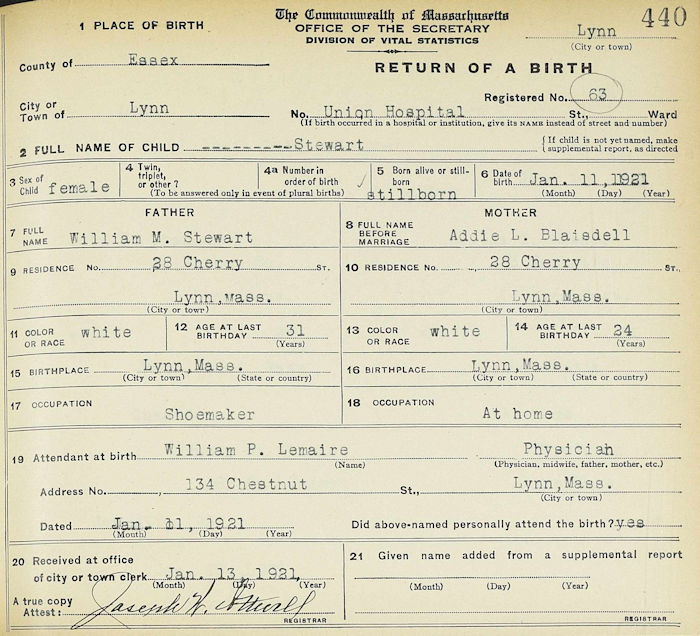 440
The Commonwealth of Massachusetts
OFFICE OF THE SECRETARY
DIVISION OF VITAL STATISTICS
Lynn
(City or town)
1 PLACE OF BIRTH
County of Essex
RETURN OF A BIRTH
Registered No. 63
City or Town of Lynn
No. Union Hospital St., Ward
(If birth occurred in a hospital or institution, give its NAME instead of street and number)
2 FULL NAME OF CHILD ---------Stewart
{If child is not yet named, make supplemental report, as directed
3 Sex of Child female
4 Twin, triplet, or other?
4a Number in order of birth
(To be answered only in event of plural births)
5 Born alive or still-born stillborn
6 Date of birth Jan. 11, 1921
(Month) (Day) (Year)
FATHER
7 FULL NAME William M. Stewart
9 RESIDENCE No. 28 Cherry ST.
Lynn,Mass.
(City or town)
11 COLOR OR RACE white
12 AGE AT LAST BIRTHDAY 31
(Years)
15 BIRTHPLACE Lynn,Mass.
(City or town) (State or country)
17 OCCUPATION
Shoemaker
MOTHER
8 FULL NAME BEFORE MARRIAGE Addie L. Blaisdell
10 RESIDENCE No. 28 Cherry ST.,
Lynn,Mass.
(City or town)
13 COLOR OR RACE white
14 AGE AT LAST BIRTHDAY 24
(Years)
16 BIRTHPLACE Lynn,Mass.
(City or town) (State or country)
18 OCCUPATION
At home
19 Attendant at birth William P. Lemaire Physician
(Name) (Physician, midwife, father, mother, etc.)
Address No. 134 Chestnut St., Lynn,Mass.
(City or town)
Dated Jan. 11, 1921
(Month) (Day) (Year)
Did above-named personally attend the birth? yes
20 Received at office
of city or town clerk Jan. 13, 1921,
(Month) (Day) (Year)
A true copy
Attest: Joseph W. Attwill
REGISTRAR
21 Given name added from a supplemental report
(Month) (Day) (Year)
REGISTRAR